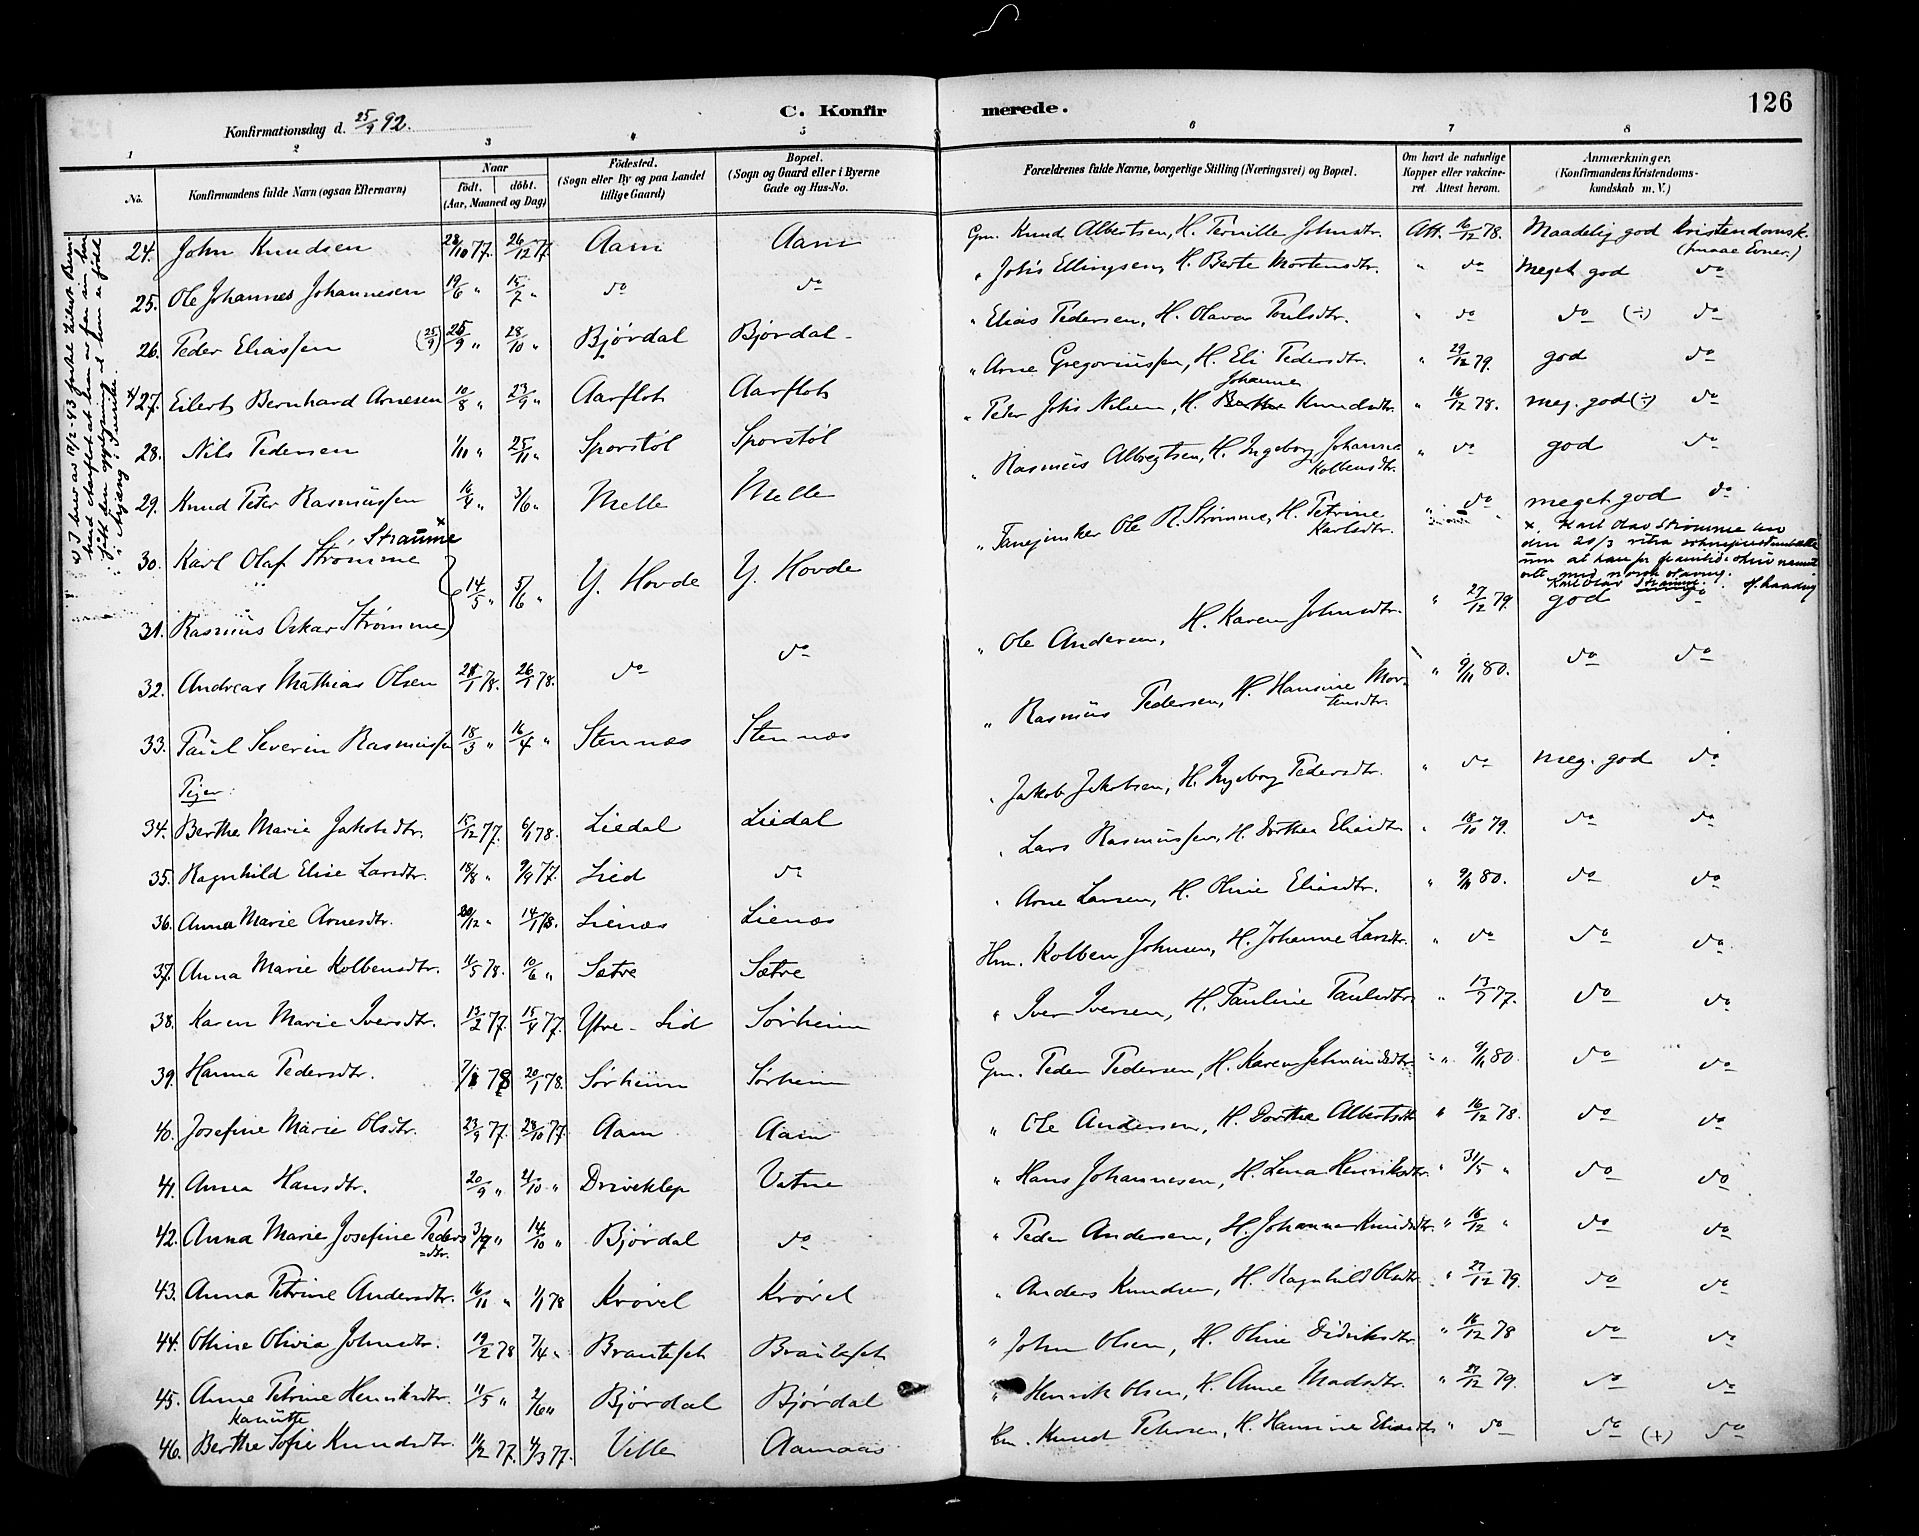 126
Konfirmationsdag d. 25/9 92.
C. Konfirmerede.
1 2 3 4 5 6 7 8
No. Konfirmandens fulde Navn (ogsaa Efternavn) Naar født. døbt. (Aar, Maaned og Dag) Fødested. (Sogn eller By og paa Landet tillige Gaard) Bopæl. (Sogn og Gaard eller i Byerne Gade og Hus-No. Forældrenes fulde Navne, borgerlige Stilling (Næringsvei) og Bopæl. Om havt de naturlige Kopper eller vaccineret. Attest herom. Anmærkninger. (Konfirmandens Kristendomskundskab m. V.)
24. John Knudsen 28/10 77. 26/12 77. Aam Aam Gm. Knud Albertsen, H. Pernille Johnsdtr. Att. 16/12 78. Maadelig god Kristendomsk. (smaae Evner.)
25. Ole Johannes Johannesen 19/6 " 15/7 " do do " Johs Ellingsen, H. Berte Mortensdtr. " do Meget god do
26. Peder Eliassen (25/9) 25/9 " 28/10 " Bjørdal Bjørdal " Elias Pedersen, H. Olava Poulsdtr. " do do (÷) do
27. Eilert Bernhard Arnesen 10/8 " 23/9 " Aarflot Aarflot " Arne Gregoriussen, H. Eli Pedersdtr. " 29/12 79. god do
28. Nils Pedersen 1/10 " 25/11 " Sporstøl Sporstøl " Peter Johs Nilsen, H. Johanne Knudsdtr. " 16/12 78. meg. god (÷) do
29. Knud Peter Rasmussen 16/4 " 3/6 " Melle Melle " Rasmus Albregtsen, H. Ingeborg Johanne Kolbensdtr. " do god do
30. Karl Olaf Strømme Straume x 14/5 " 5/6 " Y. Hovde Y. Hovde " Fanejunker Ole R. Strømme, H. Petrine Karlsdtr. " do meget god do
x Karl Olav Strømme
den 20/3
Karl Olav Straume.
31. Rasmus Oskar Strømme
32. Andreas Mathias Olsen 21/1 78. 26/1 78. do do " Ole Andersen, H. Karen Johnsdtr. " 27/12 79. god do
33. Paul Severin Rasmussen 18/3 " 16/4 " Stennæs Stennæs " Rasmus Pedersen, H. Hansine Mortensdtr. " 9/11 80. do do
Piger:
34. Berthe Marie Jakobsdtr. 15/12 77. 6/1 78. Liedal Liedal " Jakob Jakobsen, H. Ingeborg Pedersdtr. " do meg. god do
35. Ragnhild Elise Larsdtr. 18/8 " 9/9 77. Lied do " Lars Rasmussen, H. Dorthea Eliasdtr " 18/10 79. do do
36. Anna Marie Arnesdtr. 20/12 " 14/1 78. Lienæs Lienæs " Arne Larsen, H. Oline Eliasdtr. " 9/11 80. do do
37. Anna Marie Kolbensdtr. 11/5 78. 10/6 " Sætre Sætre Hm. Kolben Johnsen, H. Johanne Larsdtr. " do do do
38. Karen Marie Iversdtr. 13/2 77. 15/4 77. Ytre-Lid Sørheim " Iver Iversen, H. Pauline Paulsdtr " 13/7 77. do do
39. Hanna Pedersdtr. 7/1 78 20/1 78. Sørheim Sørheim Gm. Peder Pedersen, H. Karen Jetmundsdtr " 9/11 80. do do
40. Josefine Marie Olsdtr. 23/9 77. 28/10 77. Aam Aam " Ole Andersen, H. Dorthe Albertsdtr " 16/12 78. do do
41. Anna Hansdtr. 20/9 " 21/10 " Driveklep Vatne " Hans Johannesen, H. Lena Henriksdtr. " 31/5 " do do
42. Anna Marie Josefine Peders=dtr. 3/9 " 14/10 " Bjørdal do " Peder Andersen, H. Johanna Knudsdtr. " 16/12 " do do
43. Anna Petrine Andersdtr. 16/11 " 1/1 78 Krøvel Krøvel " Anders Knudsen, H. Ragnhild Olsdtr. " 27/12 79. do do
44. Oline Olivia Johnsdtr. 19/2 78 7/4 " Brautaset Brautaset " John Olsen, H. Oline Didriksdtr " 16/12 78 do do
45. Anne Petrine Henriksdtr. 11/5 " 2/6 " Bjørdal Bjørdal " Henrik Olsen, H. Anne Madsdtr. " 27/12 79. do do
46. Berthe Sofie Kanutte Knudsdtr. 11/2 77. 4/3 77. Velle Aamaas Hm. Knud Petersen, H. Hansine Eliasdtr " do do (+) do